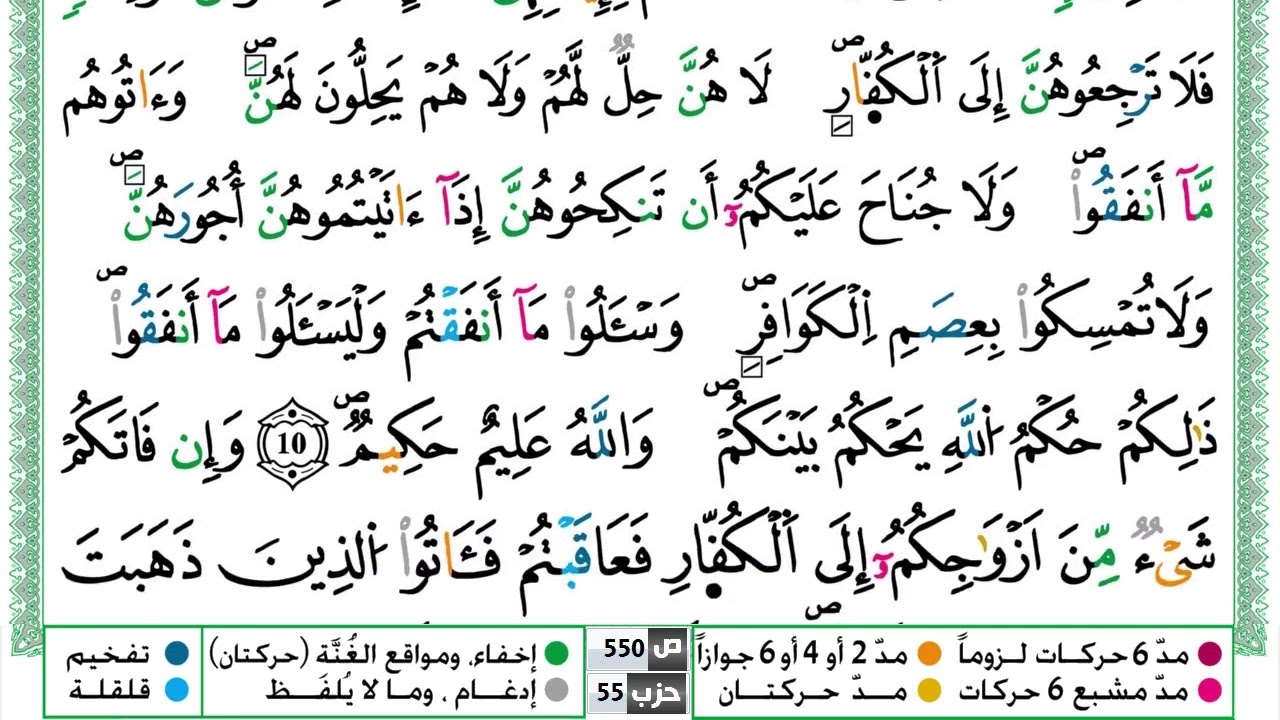 فَلَا تَرْجِعُوهُنَّ إِلَى اَ۬لْكُفّ۪ارِۖ لَا هُنَّ حِلّٞ لَّهُمْ وَلَا هُمْ يَحِلُّونَ لَهُنَّۖ وَءَاتُوهُم
مَّآ أَنفَقُواْۖ وَلَا جُنَاحَ عَلَيْكُمُۥٓ أَن تَنكِحُوهُنَّ إِذَآ ءَاتَيْتُمُوهُنَّ أُجُورَهُنَّۖ
وَلَا تُمْسِكُواْ بِعِصَمِ اِ۬لْكَوَافِرِۖ وَسْـَٔلُواْ مَآ أَنفَقْتُمْ وَلْيَسْـَٔلُواْ مَآ أَنفَقُواْۖ
ذَٰلِكُمْ حُكْمُ اُ۬للَّهِ يَحْكُمُ بَيْنَكُمْۖ وَاللَّهُ عَلِيمٌ حَكِيمٞۖ 10 وَإِن فَاتَكُمْ
شَےْءٞ مِّنَ اَزْوَٰجِكُمُۥٓ إِلَى اَ۬لْكُفّ۪ارِ فَعَاقَبْتُمْ فَـَٔاتُواْ اُ۬لذِينَ ذَهَبَتَ
مدّ 6 حركات لزوماً مدّ 2 أو 4 أو 6 جوازاً ص 550 إخفاء، ومواقع الغُنَّة (حركتان) تفخيم
مدّ مشبع 6 حركات مدّ حركتان حزب 55 إدغام ، وما لا يُلفَظ قلقلة